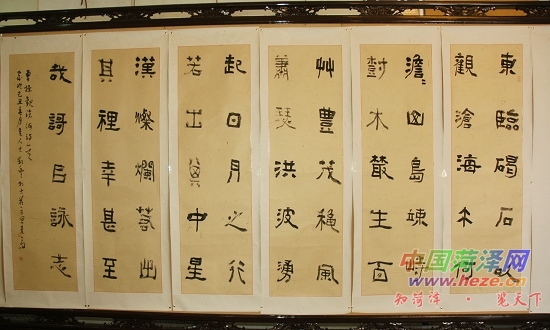 東臨碣石以
觀滄海水何
澹山島竦峙
樹木叢生百
艸豐茂穐風
蕭瑟洪波湧
起日月之行
若出其中星
漢燦爛若出
其裡幸甚至
哉謌㠯詠志
曹操觀滄海詩一首
中国菏泽网
www.heze.com
知菏泽·览天下